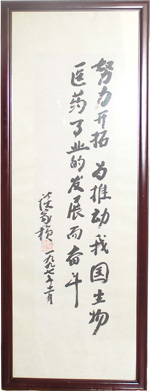 努力开拓 为推动我国生物
医药事业的发展而奋斗
一九九七年二月